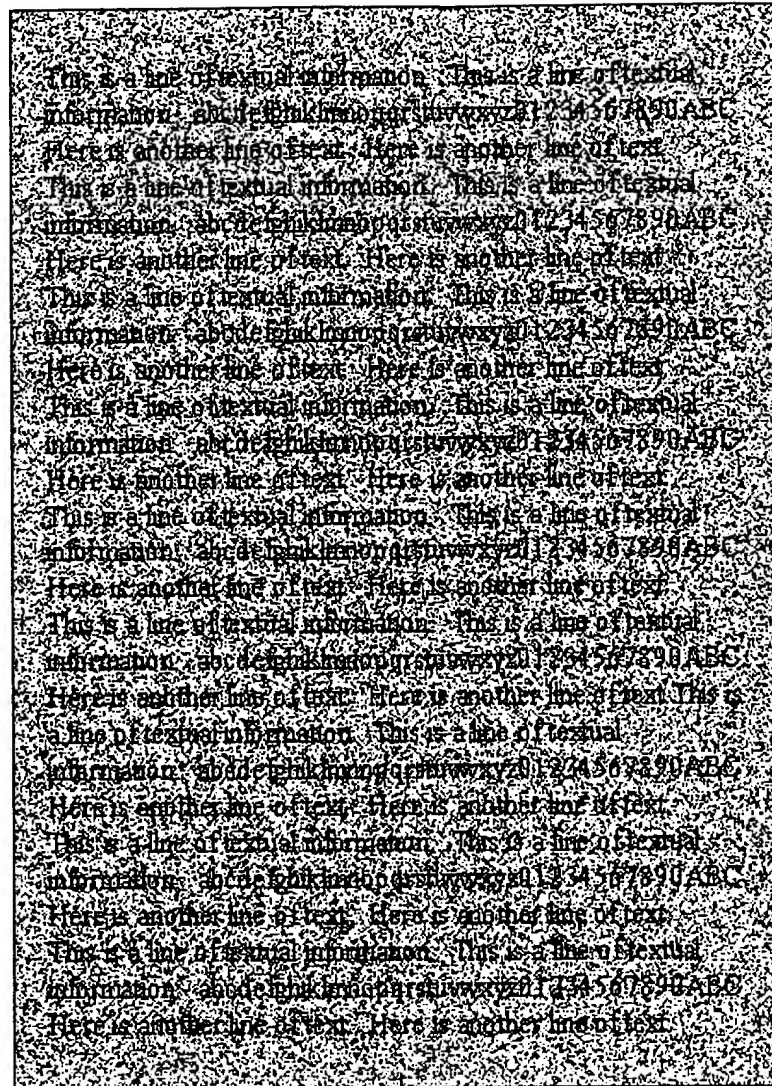 This is a line of textual information. This is a line of textual
information 0123456789 0ABC
Here is another line of text. Here is another line of text.
This is a line of textual information. This is a line of textual
information 0123456789 0ABC
Here is another line of text. Here is another line of text.
This is a line of textual information. This is a line of textual
information 0123456789 0ABC
Here is another line of text. Here is another line of text.
This is a line of textual information. This is a line of textual
information 0123456789 0ABC
Here is another line of text. Here is another line of text.
This is a line of textual information. This is a line of textual
information 0123456789 0ABC
Here is another line of text. Here is another line of text.
This is a line of textual information. This is a line of textual
information 0123456789 0ABC
Here is another line of text. Here is another line of text. This is
a line of textual information. This is a line of textual
information 0123456789 0ABC
Here is another line of text. Here is another line of text.
This is a line of textual information. This is a line of textual
information 0123456789 0ABC
Here is another line of text. Here is another line of text.
This is a line of textual information. This is a line of textual
information 0123456789 0ABC
Here is another line of text. Here is another line of text.